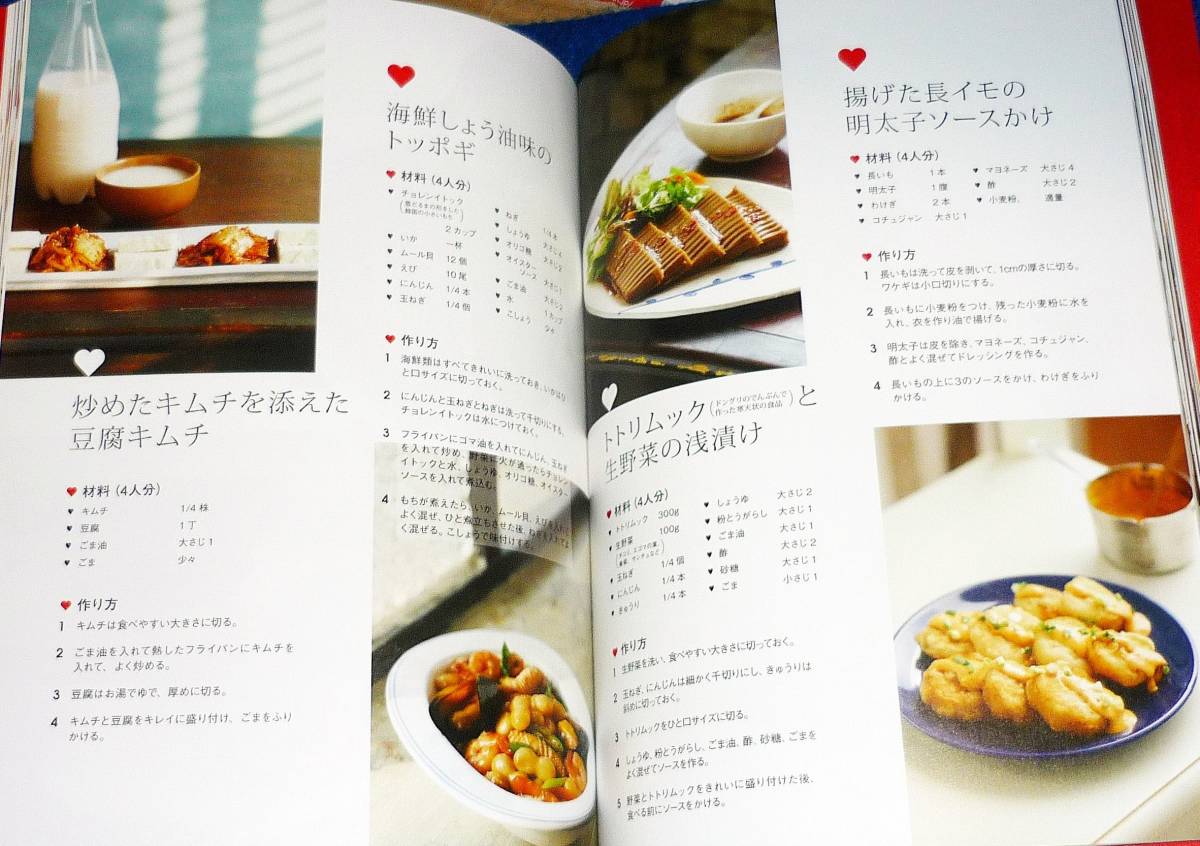 炒めたキムチを添えた
豆腐キムチ
材料(4人分)
キムチ 1/4株
豆腐 1丁
ごま油 大さじ1
ごま 少々
作り方
1 キムチは食べやすい大きさに切る。
2 ごま油を入れて熱したフライパンにキムチを
入れて、よく炒める。
3 豆腐はお湯でゆで、厚めに切る。
4 キムチと豆腐をキレイに盛り付け、ごまをふり
かける。
海鮮しょう油味の
トッポギ
材料(4人分)
チョレンイトック
2カップ
いか 一杯
ムール貝 12個
えび 10尾
にんじん 1/4本
玉ねぎ 1/4個
ねぎ 1/4本
しょうゆ 大さじ4
オリゴ糖 大さじ2
オイスター
ソース 大さじ1
ごま油 大さじ2
水 1カップ
こしょう 少々
作り方
1 海鮮類はすべてきれいに洗っておき、いかはひ
と口サイズに切っておく。
2 にんじんと玉ねぎとねぎは洗って千切りにする。
チョレンイトックは水につけておく。
3 フライパンにゴマ油を入れてにんじん、玉ねぎ
を入れて炒め、野菜に火が通ったらチョレン
イトックと水、しょうゆ、オリゴ糖、オイスター
ソースを入れて煮込む。
4 もちが煮えたら、いか、ムール貝、えびを入れて
よく混ぜ、ひと煮立ちさせた後、ねぎを入れてよ
く混ぜる。こしょうで味付けする。
トトリムック(ドングリのでんぷんで
作った寒天状の食品)と
生野菜の浅漬け
材料(4人分)
トトリムック 300g
生野菜 100g
玉ねぎ 1/4個
にんじん 1/4本
きゅうり 1/4本
しょうゆ 大さじ2
粉とうがらし 大さじ1
ごま油 大さじ1
酢 大さじ2
砂糖 大さじ1
ごま 小さじ1
作り方
1 生野菜を洗い、食べやすい大きさに切っておく。
2 玉ねぎ、にんじんは細かく千切りにし、きゅうりは
斜めに切っておく。
3 トトリムックをひと口サイズに切る。
4 しょうゆ、粉とうがらし、ごま油、酢、砂糖、ごまを
よく混ぜてソースを作る。
5 野菜とトトリムックをきれいに盛り付けた後、
食べる前にソースをかける。
揚げた長イモの
明太子ソースかけ
材料(4人分)
長いも 1本
明太子 1腹
わけぎ 2本
コチュジャン 大さじ1
マヨネーズ 大さじ4
酢 大さじ2
小麦粉、 適量
作り方
1 長いもは洗って皮を剥いて、1cmの厚さに切る。
ワケギは小口切りにする。
2 長いもに小麦粉をつけ、残った小麦粉に水を
入れ、衣を作り油で揚げる。
3 明太子は皮を除き、マヨネーズ、コチュジャン、
酢とよく混ぜてドレッシングを作る。
4 長いもの上に3のソースをかけ、わけぎをふり
かける。